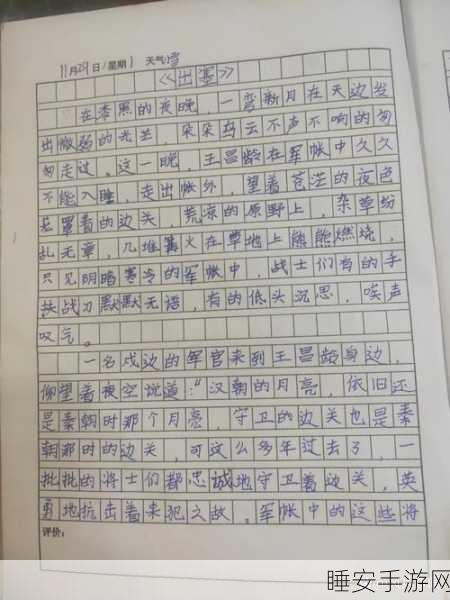 11月29日/星期1 天气晴
《出塞》
在漆黑的夜晚，一弯新月在天边发
出微弱的光芒，朵朵乌云不声不响的匆
匆走过。这一晚，王昌龄在军帐中久久
不能入睡，走出帐外，望着苍茫的夜色
笼罩着的边关，荒凉的原野上，杂草纷
乱无章，几堆篝火在草地上熊熊燃烧，
只见阴暗寒冷的军帐中，战士们有的手
扶战刀默默无语，有的低头沉思，唉声
叹气。
一名戍边的军官来到王昌龄身边，
仰望着夜空说道："汉朝的月亮，依旧还
是秦朝时那个月亮，守卫的边关也是秦
朝那时的边关，可这么多年过去了，一
批批的将士们都忠诚地守卫着边关，英
勇地抗击着来犯之敌。军帐中的这些将
评价：
睡安手游网